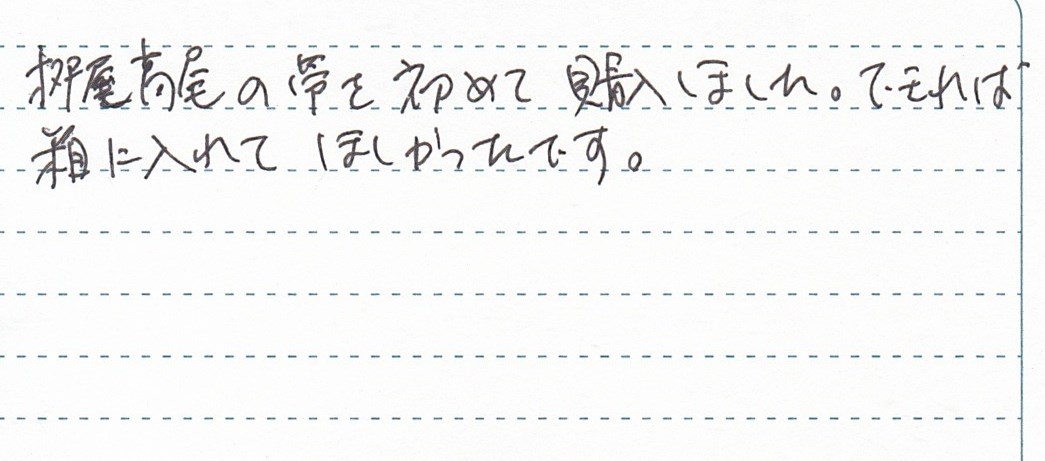 桝屋高尾の帯を初めて購入しました。できれば
箱に入れてほしかったです。